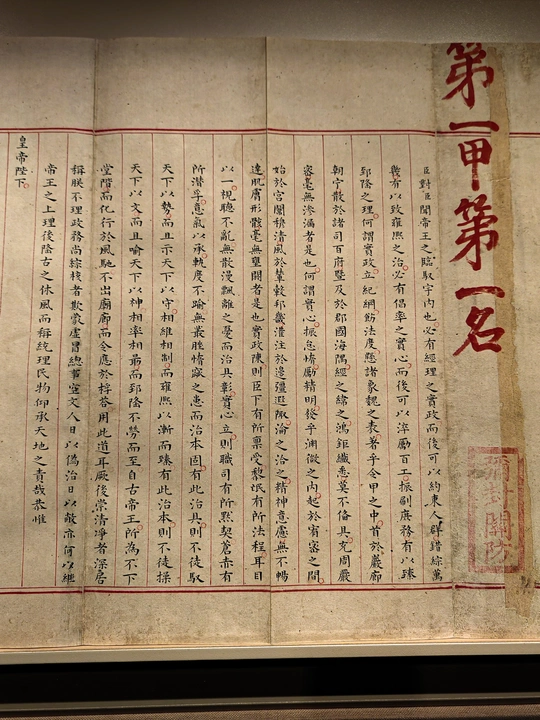 第一甲第一名
彌封關防
臣對臣聞帝王之臨馭宇內也必有經理之實政而後可以約束人群錯綜萬
幾有以致雍熙之治必有倡率之實心而後可以淬勵百工振刷庶務有以臻
郅隆之理何謂實政立紀綱飭法度懸諸象魏之表著乎令甲之中首於巖廊
朝宁散於諸司百府暨及於郡國海隅經之緯之鴻鉅纖悉莫不備具充周嚴
密毫無滲漏者是也何謂實心振怠惰勵精明發乎淵微之內起於宥密之間
始於宮闈穆清風於輦轂邦畿灌注於邊疆遐陬淪之洽之精神意慮無不暢
達肌膚形骸毫無壅閼者是也實政陳則臣下有所稟受黎氓有所法程耳目
以一視聽不亂無散漫飄離之憂而治具彰實心立則職司有所默契蒼赤有
所潛孚意氣以承軌度不踰無叢脞惰窳之患而治本固有此治具則不徒馭
天下以勢而且示天下以守相維相制而雍熙以漸而臻有此治本則不徒操
天下以文而且喻天下以神相率相勗而郅隆不勞而至自古帝王所為不下
堂階而化行於風馳不出廟廊而令應於桴答用此道耳厥後崇清凈者深居
稱朕不理政務尚綜核者欺蒙虛冒總事空文人日以偽治日以敝亦何以繼
帝王之上理後隆古之休風而稱統理民物仰承天地之責哉恭惟
皇帝陛下